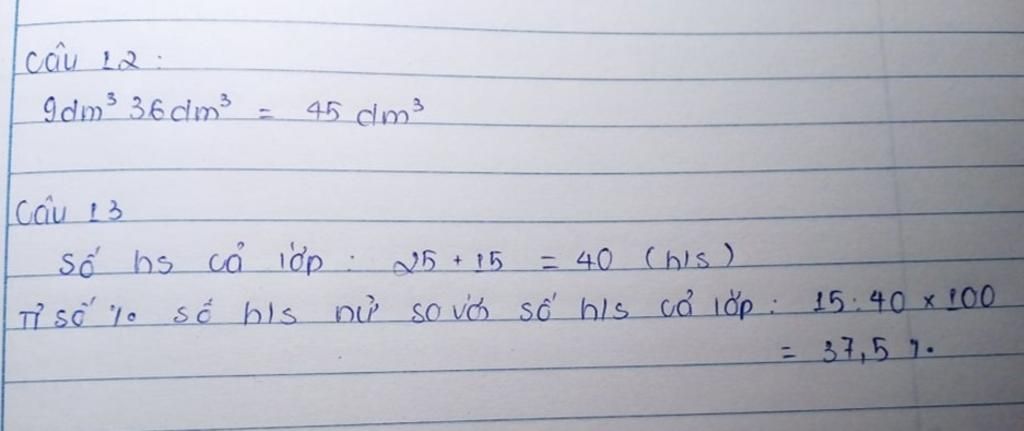 Câu 12 :
9dm³ 36dm³ = 45 dm³
Câu 13
Số hs cả lớp : 25 + 15 = 40 (h/s)
Tỉ số % số h/s nữ so với số h/s cả lớp : 15 : 40 × 100
= 37,5 %.